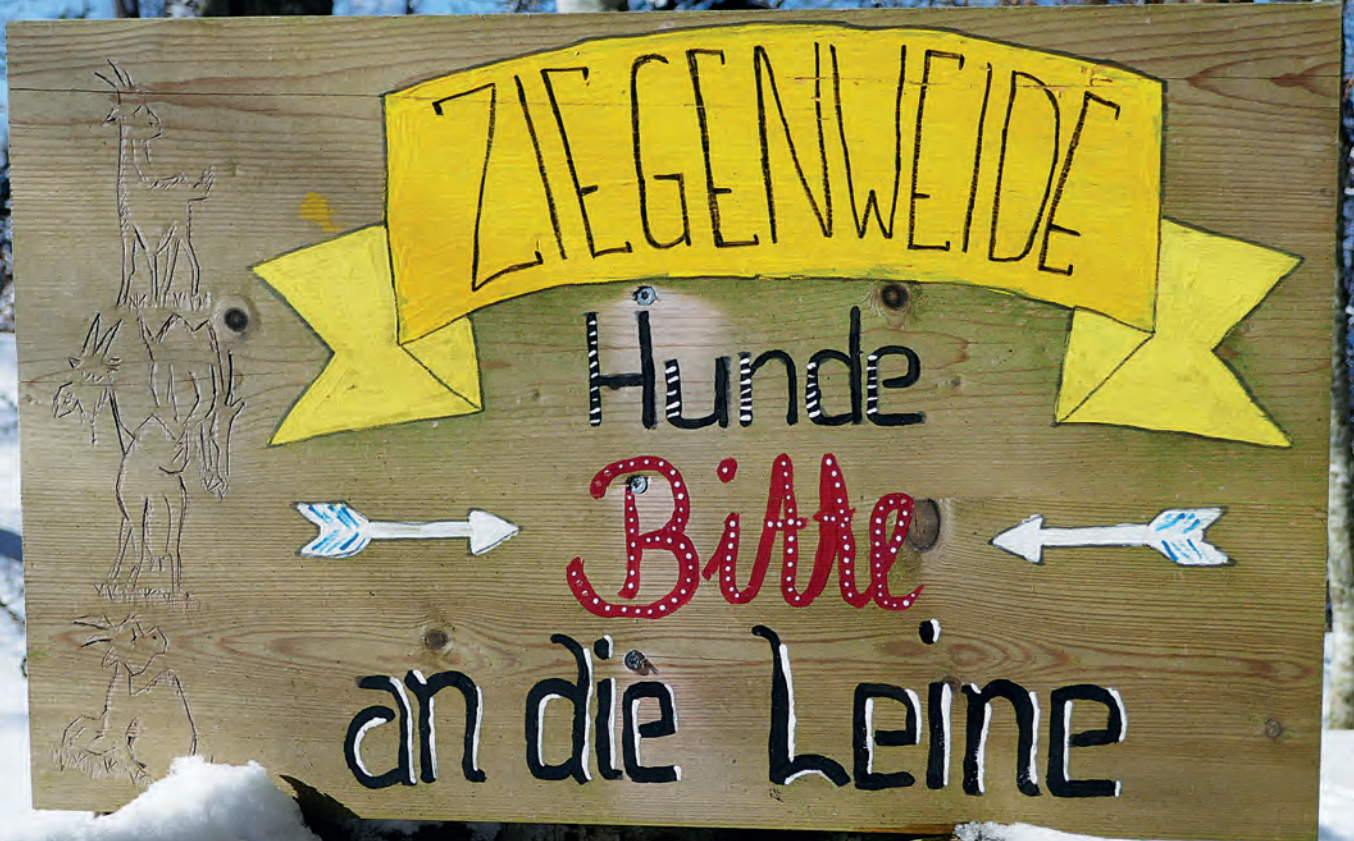 ZIEGENWEIDE
Hunde
Bitte
an die Leine